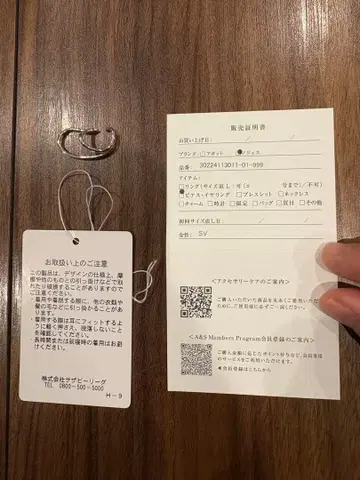 お取扱い上のご注意
この製品は、デザインの仕様上、摩
擦や他のものとの引っ掛けなどで取
れたり破損することがありますので
ご注意ください。
・着用や着脱する際に、他の衣類や
髪の毛などに引っ掛かることがあ
ります。
・着用する際は耳にフィットするよ
うに軽く押さえ、脱落しないこと
を確認してください。
・長時間または就寝時の着用はお避
けください。
株式会社サザビーリーグ
TEL 0800-500-5000
H-9
販売証明書
お買い上げ日: / /
ブランド: □アガット ノジェス
品番: 30224113011-01-999
アイテム:
□リング(サイズ直し:可(± 号まで)/不可)
ピアス・イヤリング □ブレスレット □ネックレス
□チャーム □時計 □限定 □バッグ □賞日 □その他
初回サイズ直し日: / /
金性: SV
<アクセサリーケアのご案内>
ご購入いただいた商品を末永くご愛用いただく
ために、ご使用前に必ずご一読ください。
<A&S Members Program会員登録のご案内>
ご購入金額に応じたポイント付与など、会員様用
のサービスをご利用いただけます。
◀会員登録はこちらから